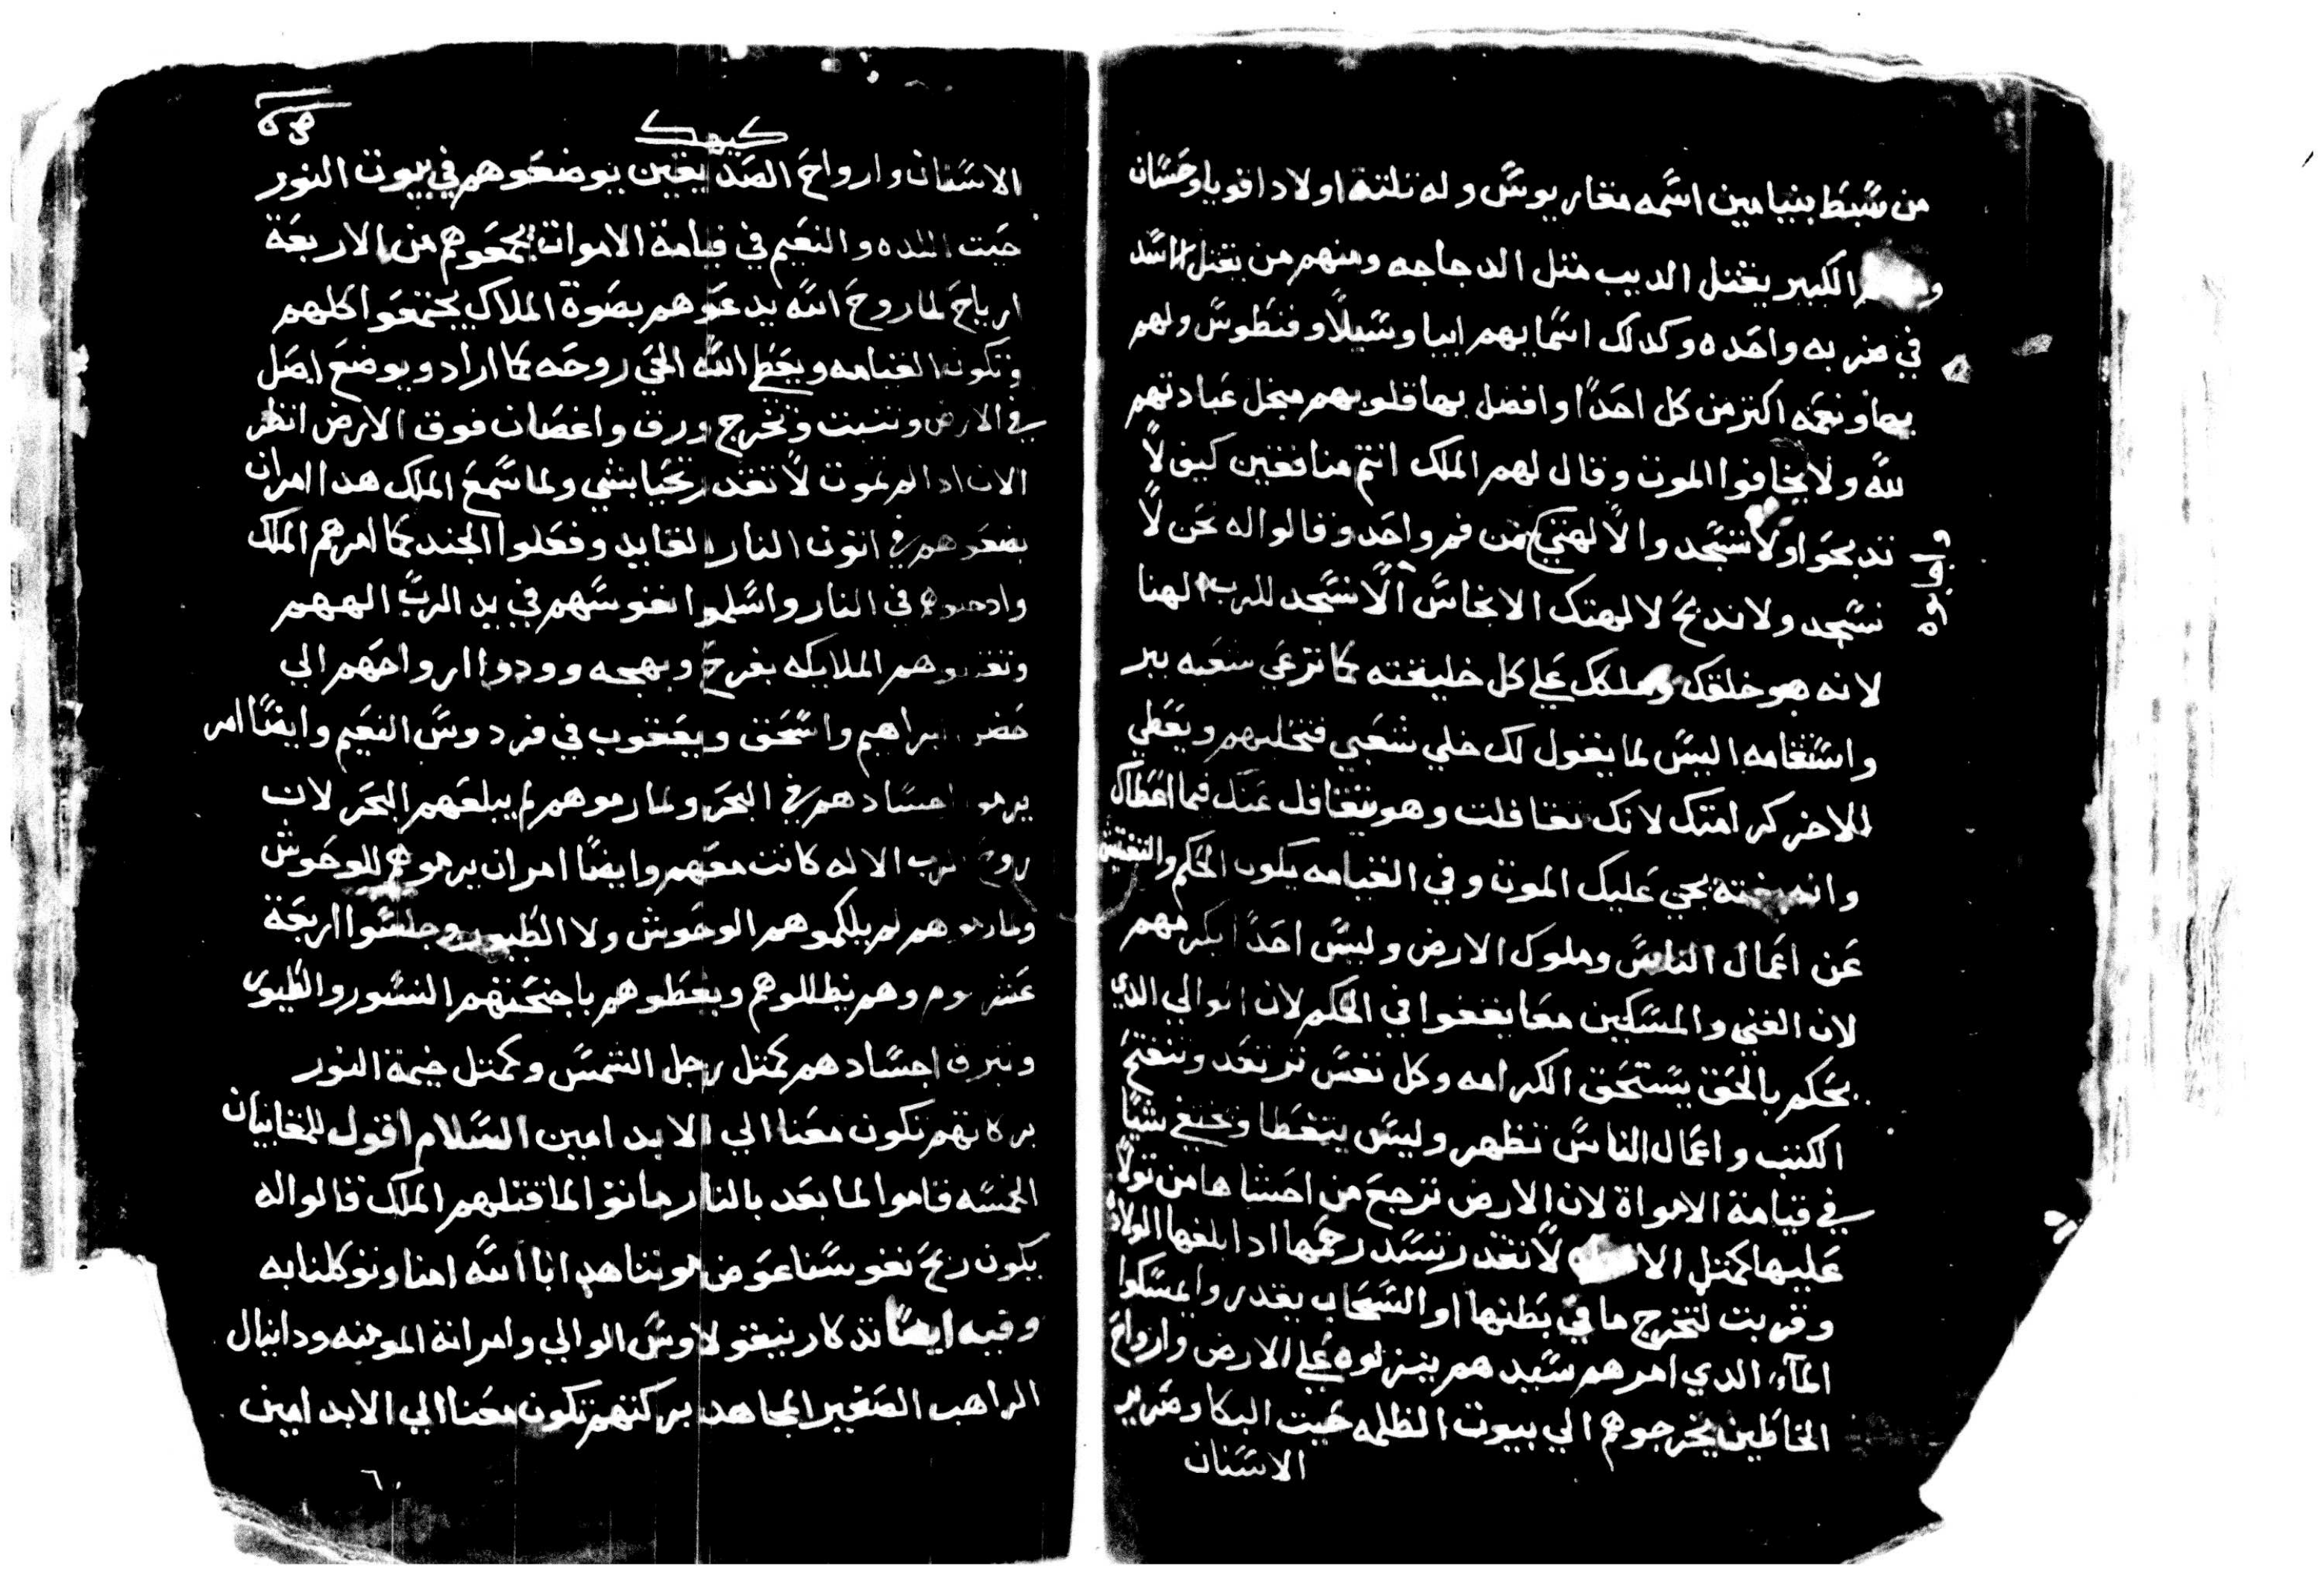 من سبط بنيامين اسمه مقاريوس وله تلته اولاد اقويا وحسان
الكبير يقتل الديب متل الدجاجه ومنهم من يقتل الاسد
في ضربه واحده وكدلك اسمايهم ابيا وسيلا وفنطوس ولهم
بها ونعمه اكتر من كل احدا وافضل بها قلوبهم منجل عبادتهم
لله ولا يخافوا الموت وقال لهم الملك انتم منافقين كيف لا
تدبحوا ولا تسجد والالهتي فمن فم واحد وقالوا له نحن لا
وابوه
نسجد ولا ندبح لالهتك الانجاس الا نسجد للرب الهنا
لانه هو خلقك وملكك علي كل خليقته كما ترعي شعبه ببر
واستقامه اليس لما يقول لك خلي شعبي فتخليهم ويعطي
للاخر كرامتك لانك تغافلت وهو يتغافل عنك فيما اعطاك
وانه بغته يجي عليك الموت وفي القيامه يكون الحكم والتفتيش
عن اعمال الناس وملوك الارض وليس احدا يكرمهم
لان الغني والمسكين معا يقفوا في الحكم لان الوالي الدي
يحكم بالحق يستحق الكرامه وكل نفس ترتعد وتنفتح
الكتب واعمال الناس تظهر وليس يتغطا وتختفي شيا
في قيامة الاموات لان الارض ترجع من احشاها من تولا
عليها كمتل لا تقدر تسد رحمها ادا بلغها الولاده
وقربت لتخرج ما في بطنها او السحاب يقدر وايمسكوا
المآء الدي امرهم سيدهم ينزلوه علي الارض وارواح
الخاطين يخرجوهم الي بيوت الظلمه حيت البكا وصرير
الاسنان
كيهك
الاسنان وارواح الصديقين يوضعوهم في بيوت النور
حيت اللده والنعيم في قيامة الاموات يجمعوهم من الاربعة
ارياح لما روح الله يدعوهم بصوة الملاك يجتمعوا كلهم
وتكون القيامه ويعطي الله الحي روحه كما اراد ويوضع اصل
في الارض وتنبت وتخرج ورق واغصان فوق الارض انظر
الان ادا لم تموت لا تقدر تحيا بشي ولما سمع الملك هدا امر ان
يضعوهم في اتون النار القايد وفعلوا الجند كما امرهم الملك
وادخلوهم في النار واسلموا نفوسهم في يد الرب الههم
هم الملايكه بفرح وبهجه وودوا ارواحهم الي
حضن ابراهيم واسحق ويعقوب في فردوس النعيم وايضا امر
يرموا اجسادهم في البحر ولما رموهم لم يبلعهم البحر لان
روح الرب الاله كانت معهم وايضا امر ان يرموهم للوحوش
ولما رموهم لم يلكموهم الوحوش ولا الطيور وجلسوا اربعة
عشر يوم وهم يظللوهم ويغطوهم باجنحتهم النسور والطيور
وتبرق اجسادهم كمتل رجل الشمس وكمتل خيمة النور
بركاتهم تكون معنا الي الابد امين السلام اقول للمغابيان
الخمسه قاموا لما بعد بالنار ماتوا لما قتلهم الملك قالوا له
يكون ربح نفوسنا عوض موتنا هدا انا الله امنا وتوكلنا به
وفيه ايضا تدكار نيقولاوس الوالي وامراته المومنه ودانيال
الراهب الصغير المجاهد بركتهم تكون معنا الي الابد امين
٦٠